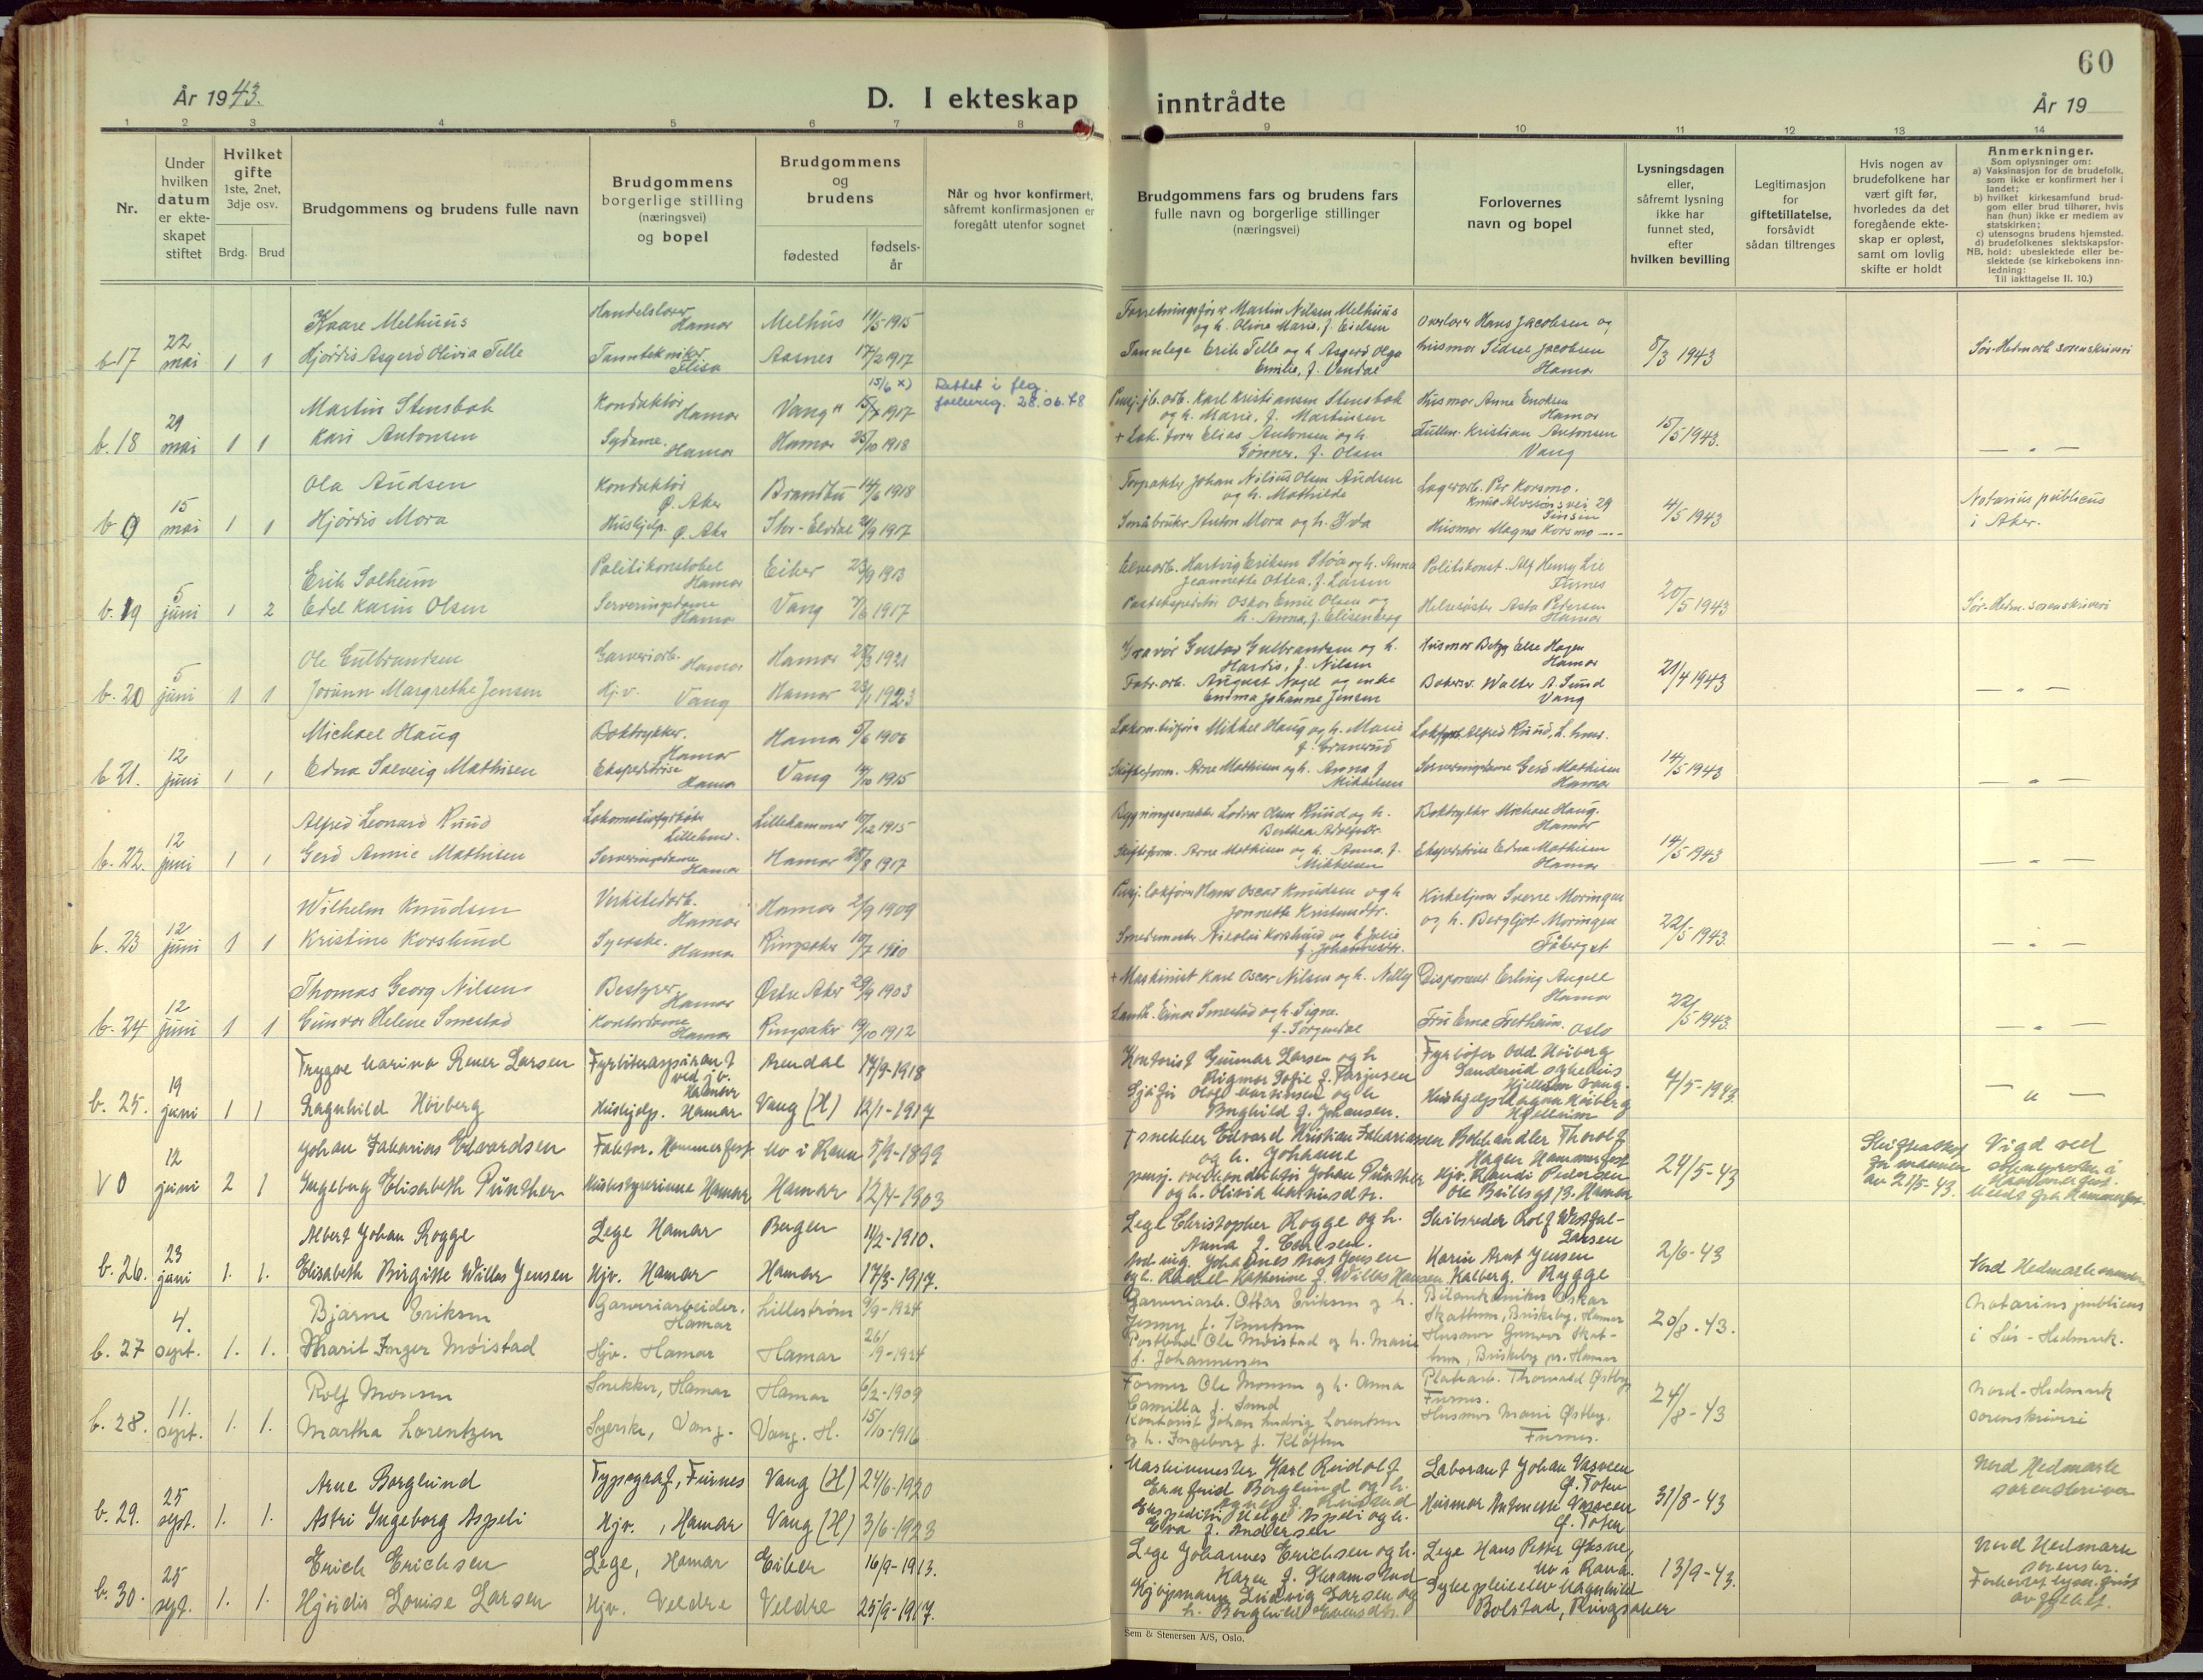 60
År 1943.
D. I ekteskap inntrådte
År 19
1 2 3 4 5 6 7 8 9 10 11 12 13 14
Nr.
Under
hvilken
datum
er ekte-
skapet
stiftet
Hvilket
gifte
1ste, 2net,
3dje osv.
Brdg. Brud
Brudgommens og brudens fulle navn
Brudgommens
borgerlige stilling
(næringsvei)
og bopel
Brudgommens
og
brudens
fødested
fødsels-
år
Når og hvor konfirmert,
såfremt konfirmasjonen er
foregått utenfor sognet
Brudgommens fars og brudens fars
fulle navn og borgerlige stillinger
(næringsvei)
Forlovernes
navn og bopel
Lysningsdagen
eller,
såfremt lysning
ikke har
funnet sted,
efter
hvilken bevilling
Legitimasjon
for
giftetillatelse,
forsåvidt
sådan tiltrenges
Hvis nogen av
brudefolkene har
vært gift før,
hvorledes da det
foregående ekte-
skap er opløst,
samt om lovlig
skifte er holdt
Anmerkninger.
Som oplysninger om:
a) Vaksinasjon for de brudefolk,
som ikke er konfirmert her i
landet;
b) hvilket kirkesamfund brud-
gom eller brud tilhører, hvis
han (hun) ikke er medlem av
statskirken;
c) utensogns brudens hjemsted.
d) brudefolkenes slektskapsfor-
NB. hold: ubeslektede eller be-
slektede (se kirkebokens inn-
ledning:
Til iakttagelse II. 10.)
b.17 22 mai 1 1
Kaare Melhuus
Hjördis Asgerd Olivia Telle
Hamar
Tanntekniker Flisa
Melhus 11/5 1915
Aasnes 17/2 1917
Forretningsfører Martin Nilsen Melhuus
og h. Oline Marie, f. Eidsen
Tannlege Erik Telle og h. Asgerd Olga
Emilie, f.
Hans Jacobsen og
husmor Sidsel Jacobsen
Hamar
8/3 1943
Sør-Hedmark sorenskriveri
b.18 29 mai 1 1
Martin Stensbak
Kari Antonsen
Konduktør Hamar
Sydame. Hamar
Vang 15/7 1917
15/6 x)
Hamar 25/10 1918
Rettet i flg.
28.06.48
Pensj. jb. arb. Karl Kristiansen Stensbak
og h. Marie, f. Martinsen
+ Lok. fører Elias Antonsen og h.
Gunner, f. Olsen
Husmor Anne Enoksen
Hamar
Fullm. Kristian Antonsen
Vang
15/5 1943.
— " —
b 0 15 mai 1 1
Ola Audsen
Hjördis Mora
Konduktør Ø. Aker
Hushjelp. Ø. Aker
Brandbu 14/6 1918
Stor-Elvdal 21/9 1917
Johan Nilius Olsen Audsen
og h. Mathilde
Småbruker Anton Mora og h. Ida
Lagerarb. Per Korsmo.
29
Sinsen
Husmor Magna Korsmo — " —
4/5 1943
Notarius publicus
i Aker.
b. 19 5 juni 1 2
Erik Solheim
Edel Karin Olsen
Politikonstabel Hamar
Serveringsdame Hamar
Eiker 23/9 1913
Vang 7/6 1917
Hartvig Eriksen og h. Anna
Jeannette Othea, f. Larsen
Oskar Emil Olsen og
h. Anna, f. Elisenberg
Politikonst. Alf Henry Lie
Furnes
Helsesøster Asta Pedersen
Hamar
20/5 1943
Sør-Hedm. sorenskriveri
b. 20 5 juni 1 1
Ole Gulbrandsen
Jorunn Margrethe Jensen
Garveriarb. Hamar
Hj.v. Vang
Hamar 28/3 1921
Hamar 23/1 1923
Gravör Gustav Gulbrandsen og h.
Hardis, f. Nilsen
Fabr.arb. August Nagel og enke
Emma Johanne Jensen
Husmor Betzy Else Hagen
Hamar
Bakersv. Walter A. Sund
Vang
21/4 1943
— " —
b 21. 12 juni 1 1
Michael Haug
Edna Solveig Mathisen
Boktrykker. Hamar
Ekspeditrise Hamar
Hamar 5/6 1906
Vang 14/10 1915
Lokom. Mikkel Haug og h. Marie
f. Granerud
Skifteform. Arne Mathisen og h. Anna f.
Mikkelsen
Alfred Ruud, L.hmr.
Serveringsdame Gerd Mathisen
Hamar
14/5 1943
— " —
b. 22. 12 juni 1 1
Alfred Leonard Ruud
Gerd Annie Mathisen
Lokomotivfyrbøter Lillehmr.
Serveringsdame Hamar
Lillehammer 10/12 1915
Hamar 28/8 1917
Bygningssnekker Ludvig Olsen Ruud og h.
Berthea Adolfsdtr.
Skifteform. Arne Mathisen og h. Anna, f.
Mikkelsen
Boktrykker Michael Haug.
Hamar
Ekspeditrise Edna Mathisen
Hamar
14/5 1943
— " —
b. 23 12 juni 1 1
Wilhelm Knudsen
Kristine Korslund
Verkstedarb. Hamar
Syerske. Hamar
Hamar 2/9 1909
Ringsaker 10/7 1910
Pensj. lokfører Hans Oscar Knudsen og h
Jonnette Kristiansdtr.
Smedmester Nicolai Korslund og h Julie
f. Johannesdtr.
Kirketjener Sverre Moringen
og h. Bergljot Moringen
Fåberg st
22/5 1943.
— " —
b. 24 12 juni 1 1
Thomas Georg Nilsen
Gunvor Helene Smestad
Bestyrer. Hamar
Kontordame Hamar
Østre Aker 29/9 1903
Ringsaker 19/10 1912
+ Maskinist Karl Oscar Nilsen og h. Nelly
Landh. Einar Smestad og h. Signe.
f. Sorgendal
Disponent Erling Angell
Hamar
Fru Erna Fretheim. Oslo
22/5 1943.
— " —
b. 25. 19 juni 1 1
Trygve Marino Reuer Larsen
Ragnhild Höiberg
Fyrböteraspirant ved j.b. Hamar
Hushjelp. Hamar
Arendal 17/9-1918
Vang (H) 12/1-1917
Kontorist Gunnar Larsen og h
Rigmor Sofie f. Torjusen
Sjåfør Olaf og h
Borghild f. Johansen.
Fyrböter Odd Höiberg
Sanderud sykehus
Hjellum Vang.
Hushjelp Dagny Höiberg
Hjellum
7/5-1943.
— " —
V 0 12 juni 2 1
Johan Zakarias Edvardsen
Ingeborg Elisabeth Pünther
Faktor. Hammerfest
Husbestyrerinne Hamar
Mo i Rana 5/9-1899
Hamar 12/4-1903
† snekker Edvard Kristian Zakariassen
og h. Johanne
pensj. overkonduktör Johan Pünther
og h. Olivia Mathiasdtr.
Bokhandler Thorolf
Hagen Hammerfest
Hjv. Randi Pedersen
Ole Bulls gt. 13. Hamar
24/5-43
Skifteattest
for mannen
av 21/5-43.
Vigd ved
sokneprest i
Hammerfest.
Meldt fra Hammerfest.
b. 26. 23 juni 1. 1.
Albert Johan Rogge
Elisabeth Birgitte Willes Jensen
Lege Hamar
Hjv. Hamar
Bergen 11/2-1910.
Hamar 17/3-1917.
Lege Christopher Rogge og h.
Anna f. Carlsen.
Avd. ing. Johannes Arnt Jensen
og h. Rachel Katherine f. Willes Hansen
Skibsreder Rolf Westfal-
Larsen
Karin Arnt Jensen
Kalberg. Rygge
2/6-43
Nord Hedmark
b. 27 4. sept. 1. 1.
Bjarne Eriksen
Marit Inger Möistad
Garveriarbeider. Hamar
Hjv. Hamar
Lilleström 9/9-1924
Hamar 26/9-1924
Garveriarb. Ottar Eriksen og h.
Jenny f. Knutsen
Postbud Ole Möistad og h. Marie
f. Johannessen
Bilmekaniker Oskar
Skattum, Briskeby, Hamar
Husmor Gunvor Skat-
tum, Briskeby pr. Hamar
20/8-43.
Notarius publicus
i Sör-Hedmark.
b. 28. 11. sept. 1. 1.
Rolf Monsen
Martha Lorentzen
Snekker, Hamar
Syerske, Vang.
Hamar 6/2-1909
Vang. H. 15/10-1916
Former Ole Monsen og h. Anna
Camilla f. Lund
Kontorist Johan Ludvig Lorentzen
og h. Ingeborg f. Kløften
Platearb. Thorvald Østby,
Furnes.
Husmor Marie Østby,
Furnes.
24/8-43
Nord-Hedmark
sorenskriveri
b. 29. 25 sept. 1. 1.
Arne Borglund
Astri Ingeborg Aspeli
Typograf, Furnes
Hjv. , Hamar
Vang (H) 24/6-1920
Vang (H) 3/6-1923
Maskinmester Karl Rudolf
Ernfrid Borglund og h.
Agnes f.
Ekspeditör Helge Aspeli og h.
Eva f. Andersen
Laborant Johan Vasveen
Ø. Toten
Husmor Antonette Vasveen
Ø. Toten
31/8-43
Nord Hedmark
sorenskriver
b. 30. 25 sept. 1. 1.
Erich Erichsen
Hjördis Louise Larsen
Lege, Hamar
Hjv. Veldre
Eiker 16/9-1913.
Veldre 25/9-1917.
Lege Johannes Erichsen og h.
Karen f. Skramstad
Kjöpmann Ludvig Larsen og
h. Borghild Evensdtr.
Lege Hans Petter Gjesne,
Mo i Rana.
Sykepleieelev Magnhild
Bolstad, Ringsaker
13/9-43.
Nord Hedmark
sorenskr.
Sem & Stenersen A/S, Oslo.